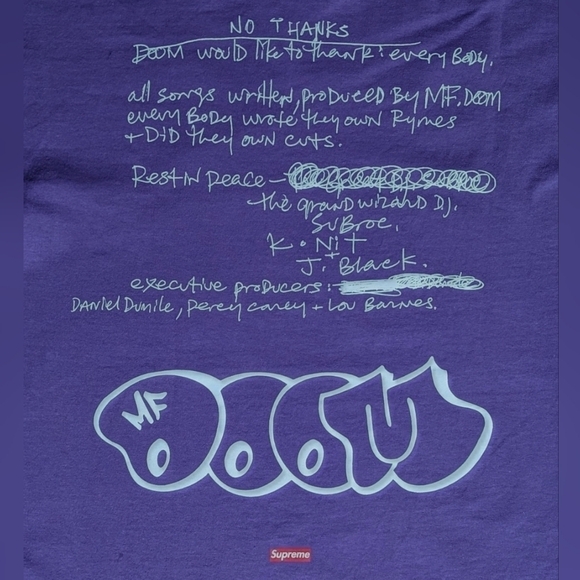 NO THANKS
DOOM would like to thank: every BoDy.
all songs written, produced By MF. DOOM
every BoDy wrote they own Rymes
+ DiD they own cuts.
Rest in peace –
the grand wizard DJ.
SuBroc.
K. Nit
+
J. Black.
executive producers:
Daniel Dumile, percy carey + Lou Barnes.
MF
DOOM
Supreme